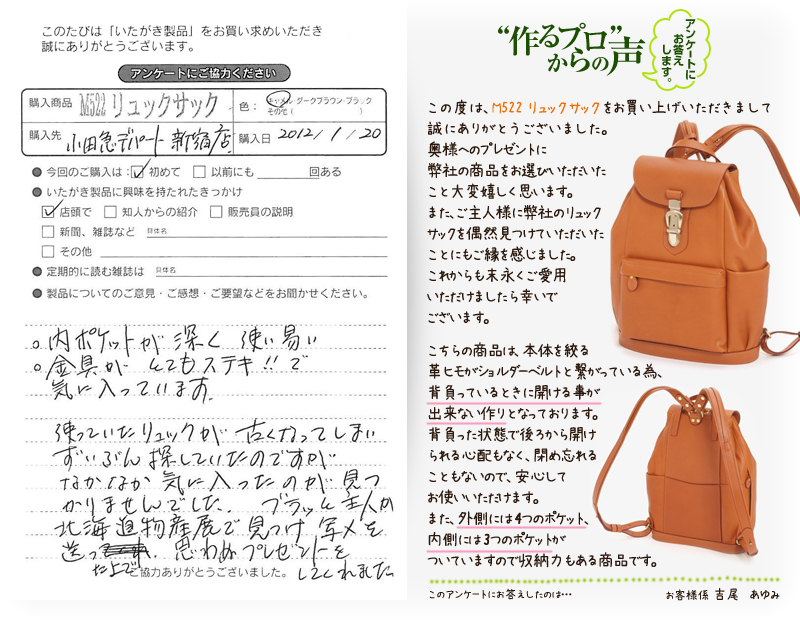 このたびは「いたがき製品」をお買い求めいただき
誠にありがとうございます。
アンケートにご協力ください
購入商品 M522 リュックサック 色： キャメル・ダークブラウン・ブラック
その他（ ）
購入先 小田急デパート 新宿店 購入日 2012/1/20
● 今回のご購入は： ☑ 初めて □ 以前にも 回ある
● いたがき製品に興味を持たれたきっかけ
☑ 店頭で □ 知人からの紹介 □ 販売員の説明
□ 新聞、雑誌など 具体名
□ その他
● 定期的に読む雑誌は 具体名
● 製品についてのご意見・ご感想・ご要望などをお聞かせください。
。内ポケットが深く使い易い
。金具がとてもステキ!!で
気に入っています。
使っていたリュックが古くなってしまい
ずいぶん探していたのですが
なかなか気に入ったのが見つ
かりませんでした。 主人が
北海道物産展で見つけ写メを
送っ 思わぬプレゼントを
た上で してくれました
ご協力ありがとうございました。
“作るプロ”
からの声
アンケートに
お答え
します。
この度は、M522 リュックサックをお買い上げいただきまして
誠にありがとうございました。
奥様へのプレゼントに
弊社の商品をお選びいただいた
こと大変嬉しく思います。
また、ご主人様に弊社のリュック
サックを偶然見つけていただいた
ことにもご縁を感じました。
これからも末永くご愛用
いただけましたら幸いで
ございます。
こちらの商品は、本体を絞る
革ヒモがショルダーベルトと繋がっている為、
背負っているときに開ける事が
出来ない作りとなっております。
背負った状態で後ろから開け
られる心配もなく、閉め忘れる
こともないので、安心して
お使いいただけます。
また、外側には4つのポケット、
内側には3つのポケットが
ついていますので収納力もある商品です。
このアンケートにお答えしたのは… お客様係 吉尾 あゆみ